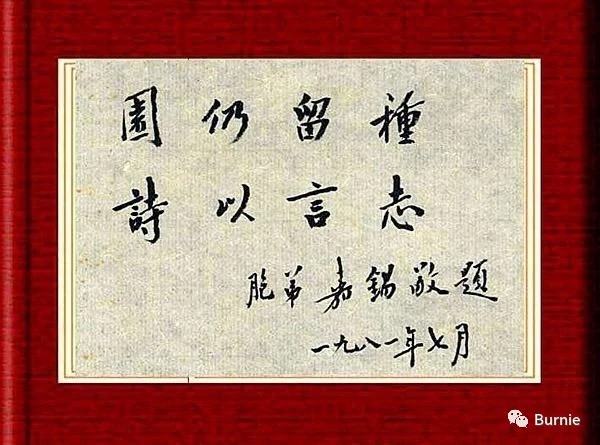 園仍留種
詩以言志
胞弟嘉錫敬題
一九八一年七月
Burnie